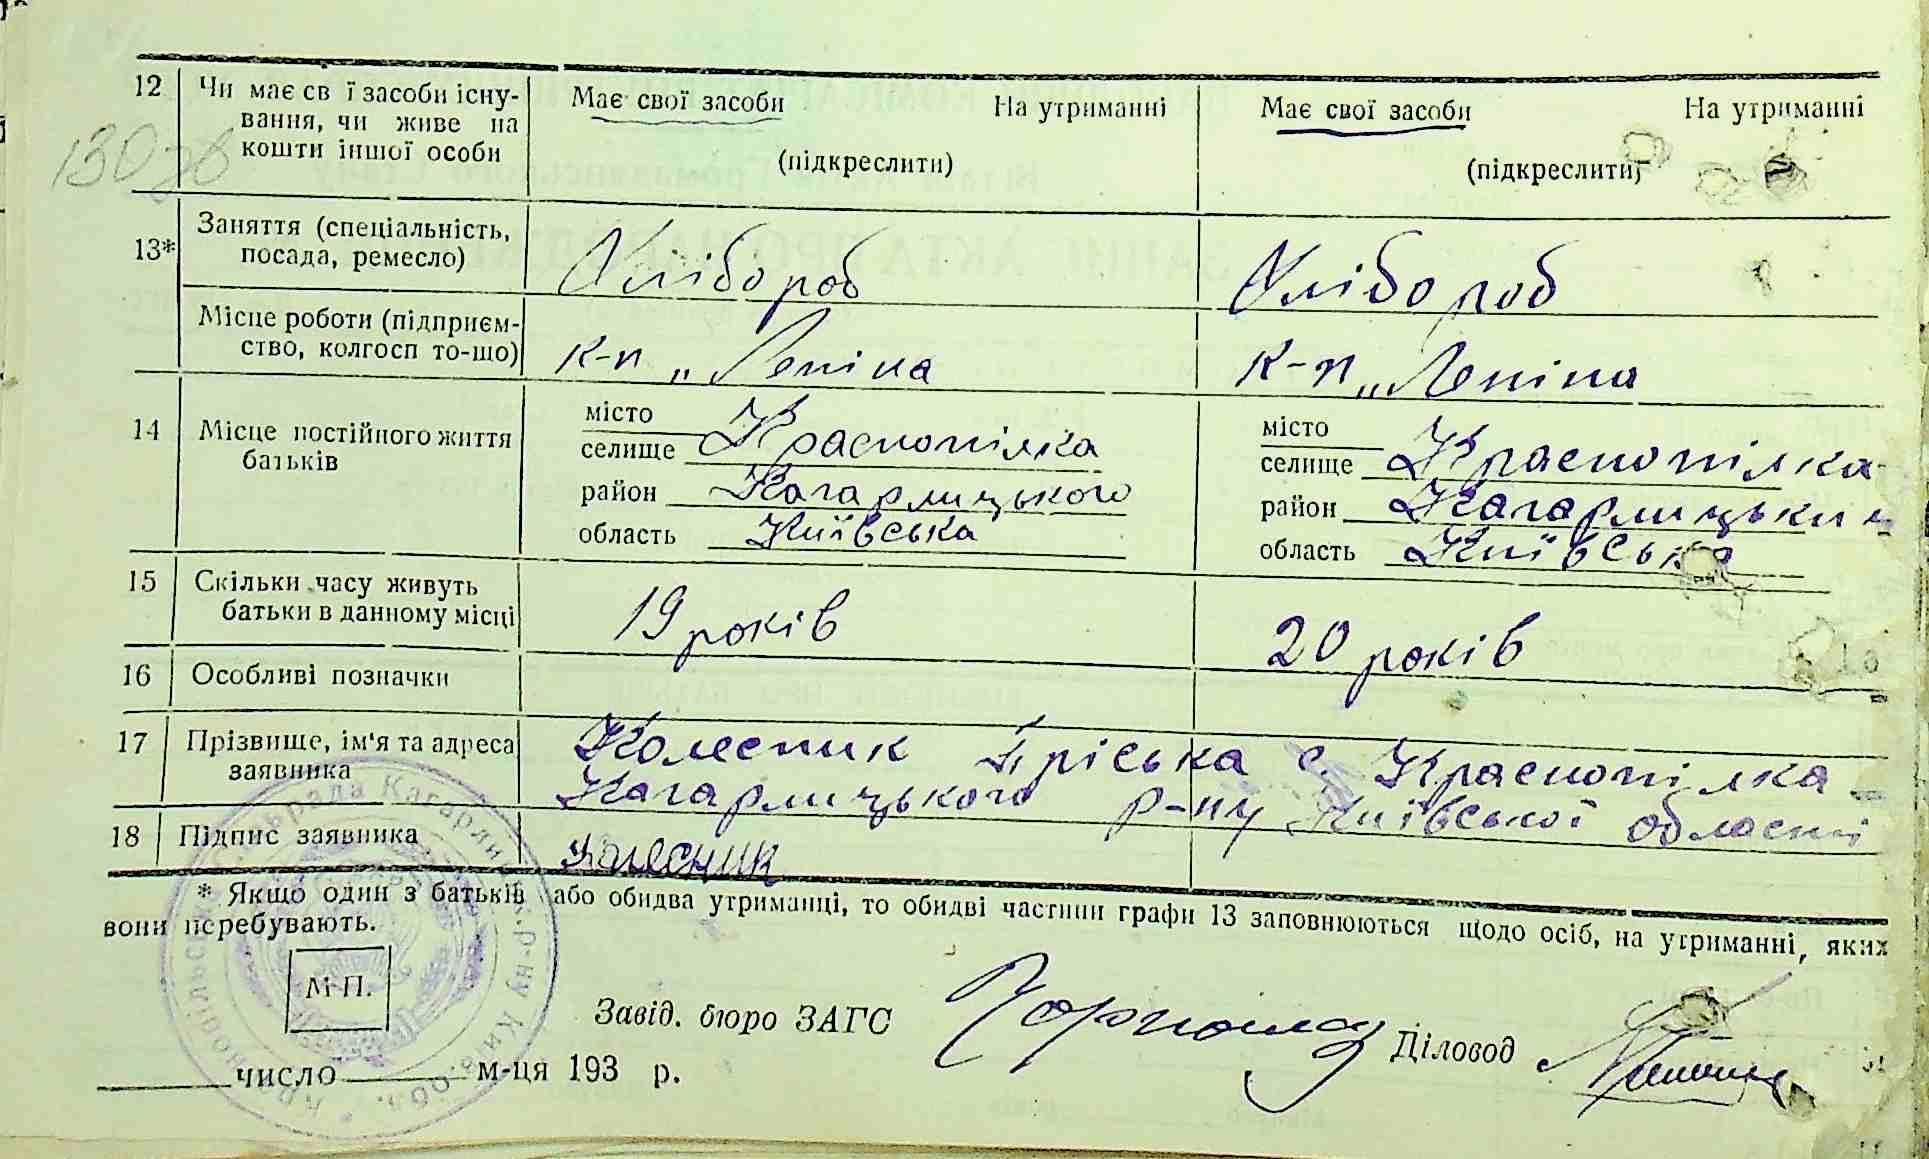 12 Чи має св ї засоби існу- Має свої засоби На утриманні Має свої засоби На утриманні
вання, чи живе на
кошти іншої особи (підкреслити) (підкреслити)
130
13* Заняття (спеціальність,
посада, ремесло) Хлібороб Хлібороб
Місце роботи (підприєм-
ство, колгосп то-що) к-п „Леніна к-п „Леніна
14 Місце постійного життя
батьків
місто місто
селище Краснопілка селище Краснопілка
район Кагарлицького район Кагарлицький
область Київська область Київська
15 Скільки часу живуть
батьки в данному місці 19 років 20 років
16 Особливі позначки
17 Прізвище, ім'я та адреса Колесник Пріська с. Краснопілка
заявника Кагарлицького р-ну Київської області
18 Підпис заявника Колесник
* Якщо один з батьків або обидва утриманці, то обидві частини графи 13 заповнюються щодо осіб, на утриманні, яких
вони перебувають.
М П.
Завід. бюро ЗАГС Діловод
число м-ця 193 р.